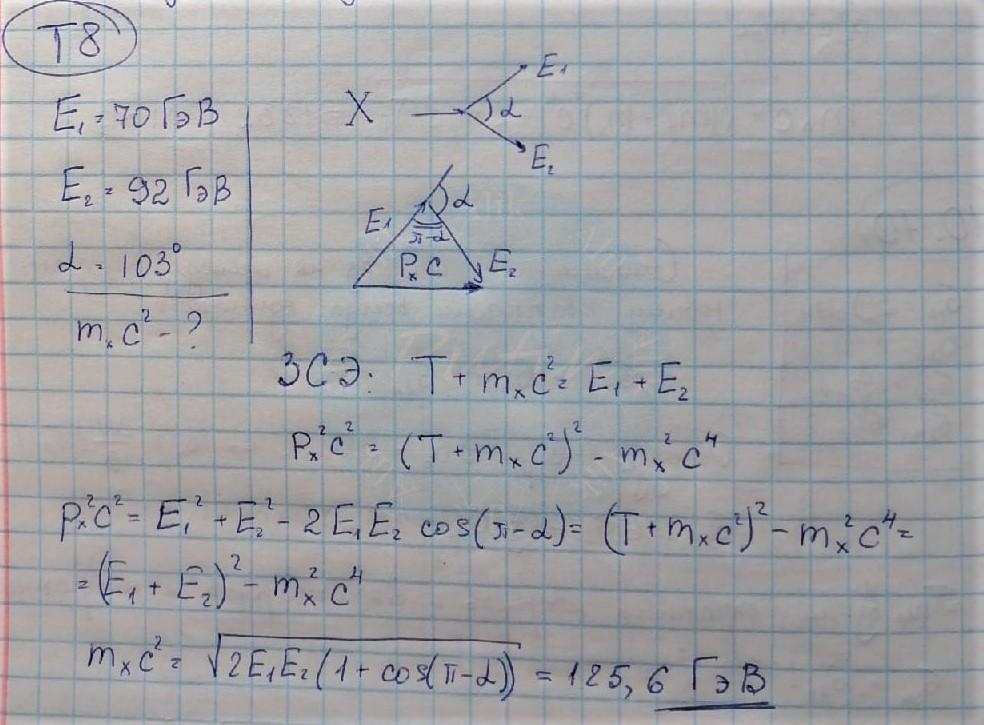 T8
E₁ = 70 ГэВ
E₂ = 92 ГэВ
α = 103°
mₓc² - ?
X E₁ α E₂
E₁ α π-α Pₓc E₂
ЗСЭ: T + mₓc² = E₁ + E₂
Pₓ²c² = (T + mₓc²)² - mₓ²c⁴
Pₓ²c² = E₁² + E₂² - 2E₁E₂ cos(π-α) = (T + mₓc²)² - mₓ²c⁴ =
= (E₁ + E₂)² - mₓ²c⁴
mₓc² = √(2E₁E₂(1 + cos(π-α)) = 125,6 ГэВ